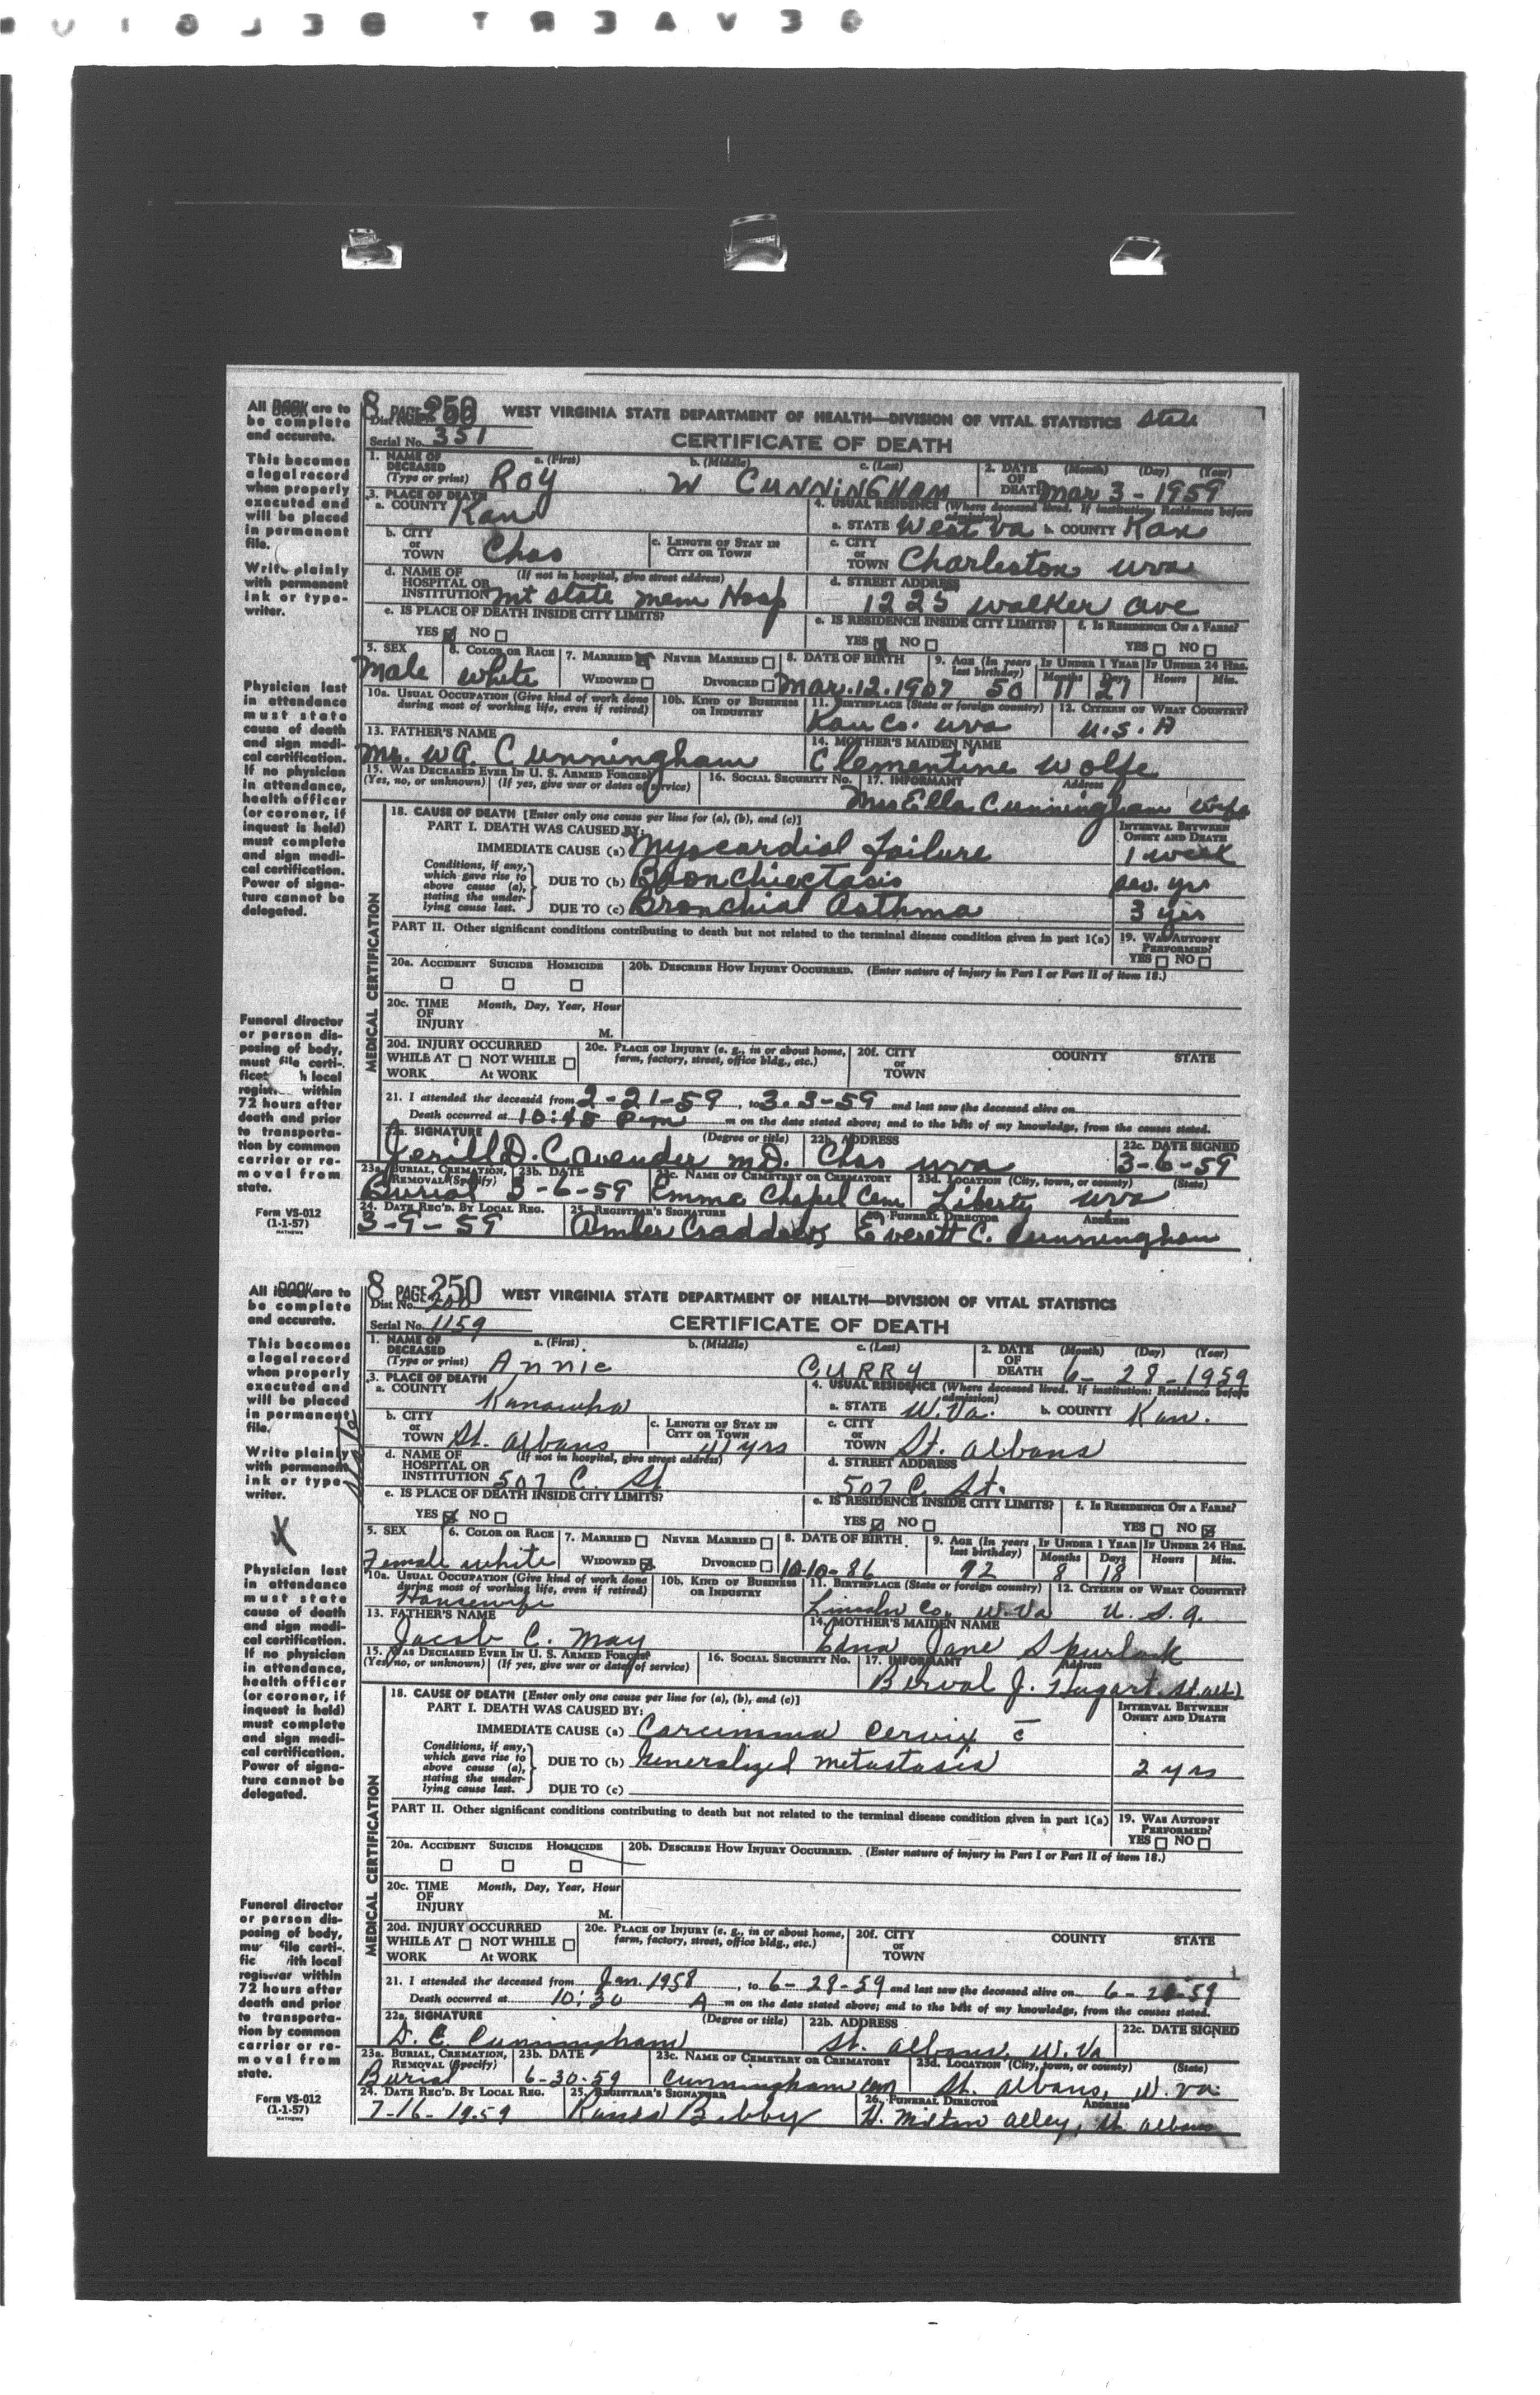 All BOOK are to
be complete
and accurate.
This becomes
a legal record
when properly
executed and
will be placed
in permanent
file.
Write plainly
with permanent
ink or type-
writer.
Physician last
in attendance
must state
cause of death
and sign medi-
cal certification.
If no physician
in attendance,
health officer
(or coroner, if
inquest is held)
must complete
and sign medi-
cal certification.
Power of signa-
ture cannot be
delegated.
Funeral director
or person dis-
posing of body,
must file certi-
h local
within
72 hours after
death and prior
to transporta-
tion by common
carrier or re-
moval from
state.
Form VS-012
(1-1-57)
MATHEWS
8 PAGE 250 WEST VIRGINIA STATE DEPARTMENT OF HEALTH—DIVISION OF VITAL STATISTICS
Dist No.
Serial No. 351 CERTIFICATE OF DEATH
1. NAME OF DECEASED (Type or print) a. (First) Roy b. (Middle) W c. (Last) CUNNINGHAM 2. DATE OF DEATH (Month) (Day) (Year) Mar 3 - 1959
3. PLACE OF DEATH a. COUNTY Kan 4. USUAL RESIDENCE (Where deceased lived. If institution: Residence before admission) a. STATE West Va b. COUNTY Kan
b. CITY or TOWN Chas c. LENGTH OF STAY IN CITY OR TOWN c. CITY or TOWN Charleston wva
d. NAME OF HOSPITAL OR INSTITUTION (If not in hospital, give street address) Mt State Mem Hosp d. STREET ADDRESS 1225 Walker Ave
e. IS PLACE OF DEATH INSIDE CITY LIMITS? YES NO e. IS RESIDENCE INSIDE CITY LIMITS? YES NO f. IS RESIDENCE ON A FARM? YES NO
5. SEX Male 6. COLOR OR RACE White 7. MARRIED NEVER MARRIED WIDOWED DIVORCED 8. DATE OF BIRTH Mar. 12. 1907 9. AGE (In years last birthday) 50 IF UNDER 1 YEAR Months 11 Days 21 IF UNDER 24 HRS. Hours Min.
10a. USUAL OCCUPATION (Give kind of work done during most of working life, even if retired) 10b. KIND OF BUSINESS OR INDUSTRY 11. BIRTHPLACE (State or foreign country) Kan Co. wva 12. CITIZEN OF WHAT COUNTRY? U.S.A
13. FATHER'S NAME Mr. WA. Cunningham 14. MOTHER'S MAIDEN NAME Clementine Wolfe
15. WAS DECEASED EVER IN U. S. ARMED FORCES? (Yes, no, or unknown) (If yes, give war or dates of service) 16. SOCIAL SECURITY No. 17. INFORMANT Address Mrs Ella Cunningham wife
MEDICAL CERTIFICATION
18. CAUSE OF DEATH [Enter only one cause per line for (a), (b), and (c)] INTERVAL BETWEEN ONSET AND DEATH
PART I. DEATH WAS CAUSED BY:
IMMEDIATE CAUSE (a) Myocardial Failure 1 week
Conditions, if any, which gave rise to above cause (a), stating the under-lying cause last.
DUE TO (b) Bronchiectasis sev. yrs
DUE TO (c) Bronchial Asthma 3 yrs
PART II. Other significant conditions contributing to death but not related to the terminal disease condition given in part 1(a) 19. WAS AUTOPSY PERFORMED? YES NO
20a. ACCIDENT SUICIDE HOMICIDE 20b. DESCRIBE HOW INJURY OCCURRED. (Enter nature of injury in Part I or Part II of item 18.)
20c. TIME OF INJURY Month, Day, Year, Hour M.
20d. INJURY OCCURRED WHILE AT WORK NOT WHILE AT WORK 20e. PLACE OF INJURY (e. g., in or about home, farm, factory, street, office bldg., etc.) 20f. CITY or TOWN COUNTY STATE
21. I attended the deceased from 2-21-59, to 3-3-59 and last saw the deceased alive on
Death occurred at 10:45 P.m m on the date stated above; and to the best of my knowledge, from the causes stated.
22a. SIGNATURE (Degree or title) D. Cavender M.D. 22b. ADDRESS Chas wva 22c. DATE SIGNED 3-6-59
23a. BURIAL, CREMATION, REMOVAL (Specify) Burial 23b. DATE 3-6-59 23c. NAME OF CEMETERY OR CREMATORY Emma Chapel Cem 23d. LOCATION (City, town, or county) (State) Liberty wva
24. DATE REC'D. BY LOCAL REG. 3-9-59 25. REGISTRAR'S SIGNATURE Amber Craddock 26. FUNERAL DIRECTOR Address Everett C. Cunningham
All BOOK are to
be complete
and accurate.
This becomes
a legal record
when properly
executed and
will be placed
in permanent
file.
Write plainly
with permanent
ink or type-
writer.
X
Physician last
in attendance
must state
cause of death
and sign medi-
cal certification.
If no physician
in attendance,
health officer
(or coroner, if
inquest is held)
must complete
and sign medi-
cal certification.
Power of signa-
ture cannot be
delegated.
Funeral director
or person dis-
posing of body,
file certi-
ith local
registrar within
72 hours after
death and prior
to transporta-
tion by common
carrier or re-
moval from
state.
Form VS-012
(1-1-57)
MATHEWS
8 PAGE 250 WEST VIRGINIA STATE DEPARTMENT OF HEALTH—DIVISION OF VITAL STATISTICS
Dist No. 200
Serial No. 1159 CERTIFICATE OF DEATH
1. NAME OF DECEASED (Type or print) a. (First) Annie b. (Middle) c. (Last) CURRY 2. DATE OF DEATH (Month) (Day) (Year) 6-28-1959
3. PLACE OF DEATH a. COUNTY Kanawha 4. USUAL RESIDENCE (Where deceased lived. If institution: Residence before admission) a. STATE W.Va. b. COUNTY Kan.
b. CITY or TOWN St. Albans c. LENGTH OF STAY IN CITY OR TOWN 41 yrs c. CITY or TOWN St. Albans
d. NAME OF HOSPITAL OR INSTITUTION (If not in hospital, give street address) 507 C. St d. STREET ADDRESS 507 C. St.
e. IS PLACE OF DEATH INSIDE CITY LIMITS? YES NO e. IS RESIDENCE INSIDE CITY LIMITS? YES NO f. IS RESIDENCE ON A FARM? YES NO
5. SEX Female 6. COLOR OR RACE white 7. MARRIED NEVER MARRIED WIDOWED DIVORCED 8. DATE OF BIRTH 10-10-86 9. AGE (In years last birthday) 92 IF UNDER 1 YEAR Months 8 Days 18 IF UNDER 24 HRS. Hours Min.
10a. USUAL OCCUPATION (Give kind of work done during most of working life, even if retired) Housewife 10b. KIND OF BUSINESS OR INDUSTRY 11. BIRTHPLACE (State or foreign country) Lincoln Co, W.Va 12. CITIZEN OF WHAT COUNTRY? U. S. A.
13. FATHER'S NAME Jacob C. May 14. MOTHER'S MAIDEN NAME Edna Jane Spurlock
15. WAS DECEASED EVER IN U. S. ARMED FORCES? (Yes, no, or unknown) (If yes, give war or dates of service) 16. SOCIAL SECURITY No. 17. INFORMANT Address J.
MEDICAL CERTIFICATION
18. CAUSE OF DEATH [Enter only one cause per line for (a), (b), and (c)] INTERVAL BETWEEN ONSET AND DEATH
PART I. DEATH WAS CAUSED BY:
IMMEDIATE CAUSE (a) Carcinoma Cervix c̄
Conditions, if any, which gave rise to above cause (a), stating the under-lying cause last.
DUE TO (b) Generalized metastasis 2 yrs
DUE TO (c)
PART II. Other significant conditions contributing to death but not related to the terminal disease condition given in part 1(a) 19. WAS AUTOPSY PERFORMED? YES NO
20a. ACCIDENT SUICIDE HOMICIDE 20b. DESCRIBE HOW INJURY OCCURRED. (Enter nature of injury in Part I or Part II of item 18.)
20c. TIME OF INJURY Month, Day, Year, Hour M.
20d. INJURY OCCURRED WHILE AT WORK NOT WHILE AT WORK 20e. PLACE OF INJURY (e. g., in or about home, farm, factory, street, office bldg., etc.) 20f. CITY or TOWN COUNTY STATE
21. I attended the deceased from Jan. 1958, to 6-28-59 and last saw the deceased alive on 6-28-59
Death occurred at 10:30 A m on the date stated above; and to the best of my knowledge, from the causes stated.
22a. SIGNATURE (Degree or title) D. C. Cunningham 22b. ADDRESS St. Albans, W.Va 22c. DATE SIGNED
23a. BURIAL, CREMATION, REMOVAL (Specify) Burial 23b. DATE 6-30-59 23c. NAME OF CEMETERY OR CREMATORY Cunningham Cem 23d. LOCATION (City, town, or county) (State) St. Albans, W. Va.
24. DATE REC'D. BY LOCAL REG. 7-16-1959 25. REGISTRAR'S SIGNATURE Bibby 26. FUNERAL DIRECTOR Address H. Milton Alley, St. Albans